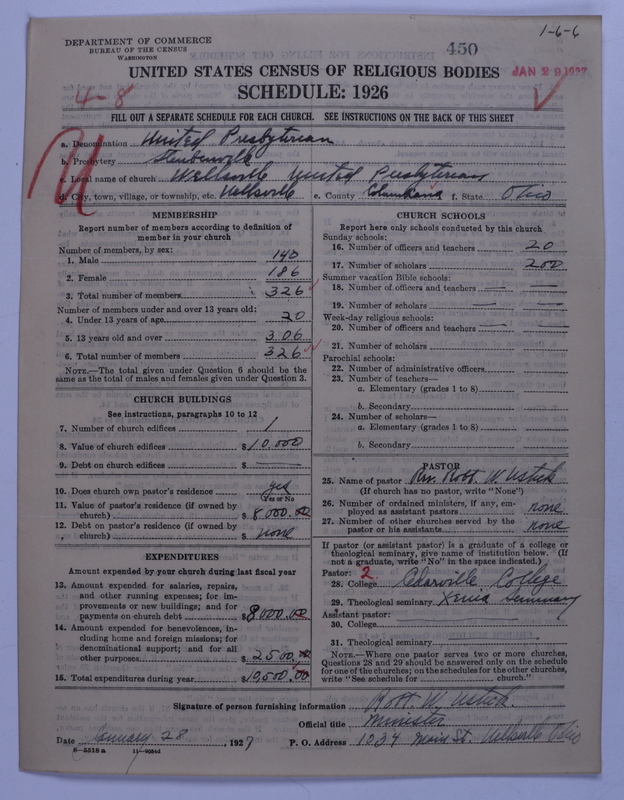 1-6-6
DEPARTMENT OF COMMERCE
BUREAU OF THE CENSUS
WASHINGTON
450
JAN 29 1927
UNITED STATES CENSUS OF RELIGIOUS BODIES
4-8
SCHEDULE: 1926
FILL OUT A SEPARATE SCHEDULE FOR EACH CHURCH. SEE INSTRUCTIONS ON THE BACK OF THIS SHEET
a. Denomination United Presbyterian
b. Presbytery Steubenville
c. Local name of church Wellsville United Presbyterian
d. City, town, village, or township, etc. Wellsville e. County Columbiana f. State Ohio
MEMBERSHIP
Report number of members according to definition of
member in your church
Number of members, by sex:
1. Male 140
2. Female 186
3. Total number of members 326
Number of members under and over 13 years old:
4. Under 13 years of age 20
5. 13 years old and over 306
6. Total number of members 326
NOTE.—The total given under Question 6 should be
the same as the total of males and females given under Question 3.
CHURCH BUILDINGS
See instructions, paragraphs 10 to 12
7. Number of church edifices 1
8. Value of church edifices $10.000
9. Debt on church edifices $ —
10. Does church own pastor's residence yes
Yes or No
11. Value of pastor's residence (if owned by
church) $8000.00
12. Debt on pastor's residence (if owned by
church) $ none
EXPENDITURES
Amount expended by your church during last fiscal year
13. Amount expended for salaries, repairs,
and other running expenses; for im-
provements or new buildings; and for
payments on church debt $8000.00
14. Amount expended for benevolences, in-
cluding home and foreign missions; for
denominational support; and for all
other purposes $2500.00
15. Total expenditures during year $10,500.00
CHURCH SCHOOLS
Report here only schools conducted by this church
Sunday schools:
16. Number of officers and teachers 20
17. Number of scholars 200
Summer vacation Bible schools:
18. Number of officers and teachers — —
19. Number of scholars — —
Week-day religious schools:
20. Number of officers and teachers — —
21. Number of scholars
Parochial schools:
22. Number of administrative officers
23. Number of teachers—
a. Elementary (grades 1 to 8)
b. Secondary
24. Number of scholars—
a. Elementary (grades 1 to 8)
b. Secondary
PASTOR
25. Name of pastor Rev. Robt. W. Ustick
(If church has no pastor, write "None")
26. Number of ordained ministers, if any, em-
ployed as assistant pastors none
27. Number of other churches served by the
pastor or his assistants none
If pastor (or assistant pastor) is a graduate of a college or
theological seminary, give name of institution below. (If
not a graduate, write "No" in the space indicated.)
Pastor: 2
28. College Cedarville College
29. Theological seminary Xenia Seminary
Assistant pastor:
30. College
31. Theological seminary
NOTE.—Where one pastor serves two or more churches,
Questions 28 and 29 should be answered only on the schedule
for one of the churches; on the schedules for the other churches,
write "See schedule for church."
Signature of person furnishing information Robt. W. Ustick
Official title Minister
Date January 28, 1927 P. O. Address 1034 Main St. Wellsville Ohio
8-5318 a